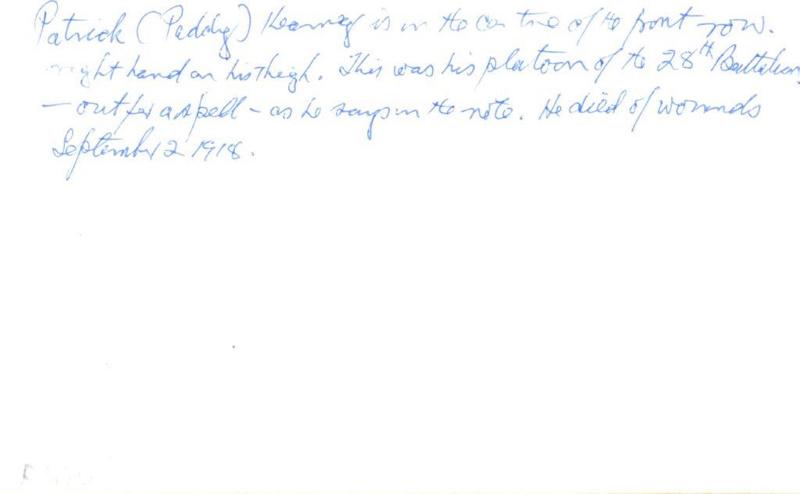 Patrick (Paddy) Kearney is in the centre of the front row.
right hand on his thigh. This was his platoon of the 28th Battalion
– out for a spell – as he says in the note. He died of wounds
September 2 1918.